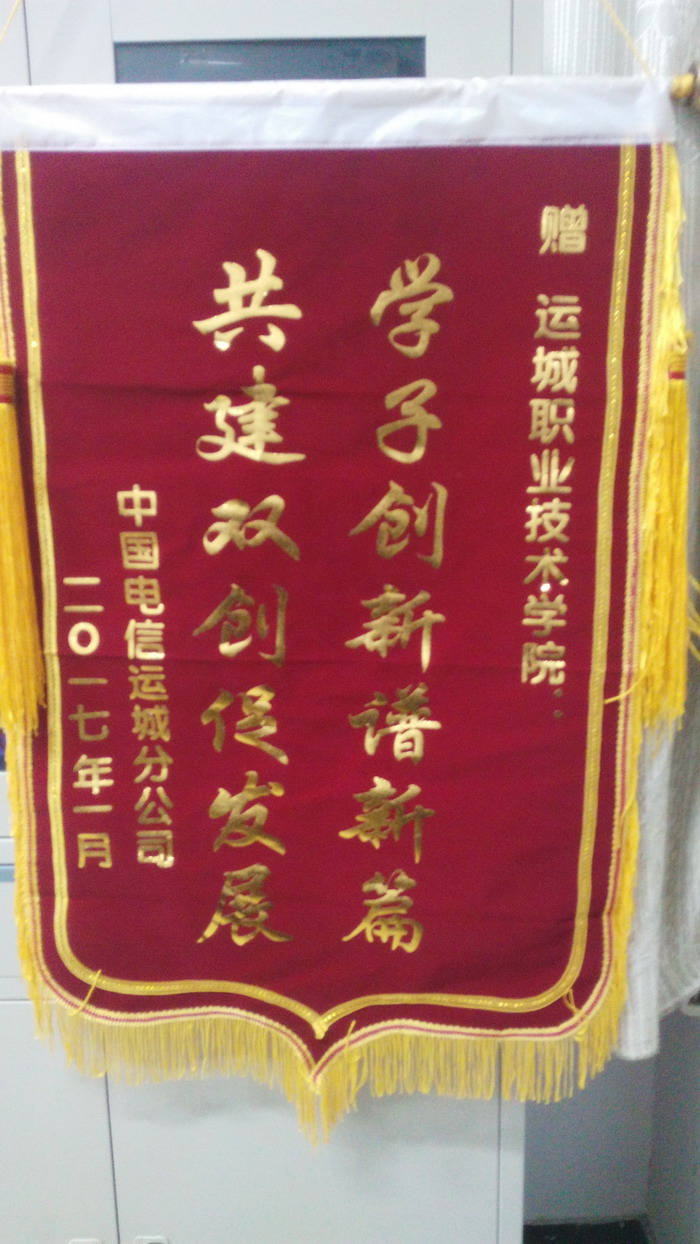 赠 运城职业技术学院:
学子创新谱新篇
共建双创促发展
中国电信运城分公司
二〇一七年一月